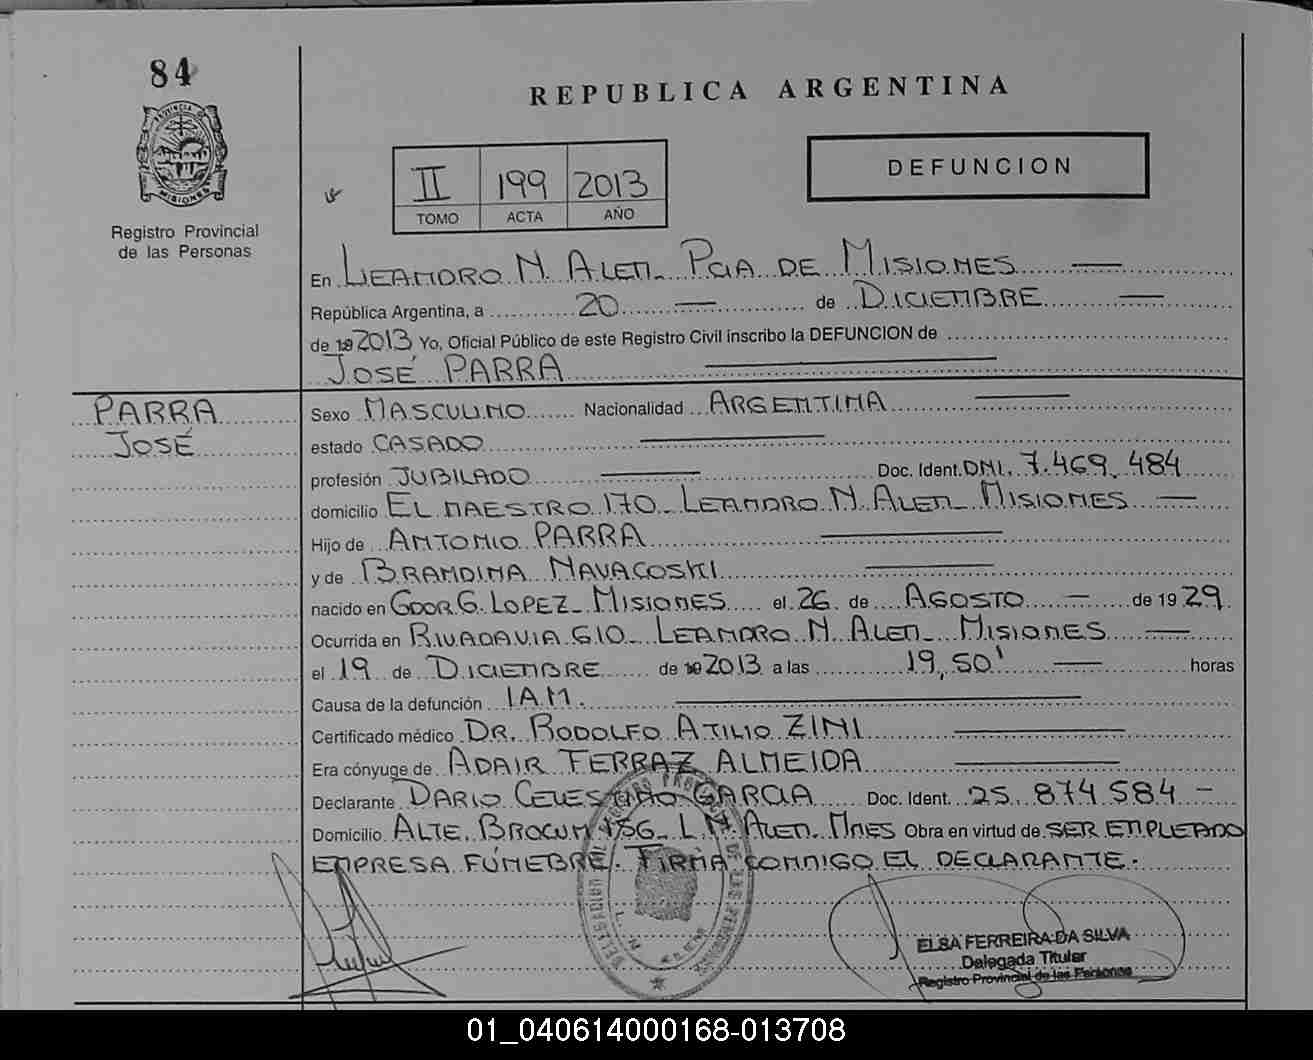 84
PROVINCIA DE
MISIONES
Registro Provincial
de las Personas
REPUBLICA ARGENTINA
DEFUNCION
II 199 2013
TOMO ACTA AÑO
En LEANDRO N. ALEM_ PCIA DE MISIONES
República Argentina, a 20 de DICIEMBRE
de 19 2013 Yo, Oficial Público de este Registro Civil inscribo la DEFUNCION de
JOSÉ PARRA
PARRA
JOSÉ
Sexo MASCULINO Nacionalidad ARGENTINA
estado CASADO
profesión JUBILADO Doc. Ident. DNI. 7.469.484
domicilio EL MAESTRO 170_ LEANDRO N. ALEM_ MISIONES
Hijo de ANTONIO PARRA
y de BRANDINA NAVACOSKI
nacido en GDOR G. LOPEZ_ MISIONES el 26 de AGOSTO de 19 29
Ocurrida en RIVADAVIA 610_ LEANDRO N. ALEM_ MISIONES
el 19 de DICIEMBRE de 19 2013 a las 19,50' horas
Causa de la defunción IAM.
Certificado médico DR. RODOLFO ATILIO ZINI
Era cónyuge de ADAIR FERRAZ ALMEIDA
Declarante DARIO CELESTINO GARCIA Doc. Ident. 25.874.584 -
Domicilio ALTE. BROWN 156_ L.N. ALEM. MNES Obra en virtud de SER EMPLEADO
EMPRESA FÚNEBRE. FIRMA CONMIGO EL DECLARANTE.
ELSA FERREIRA DA SILVA
Delegada Titular
Registro Provincial de las Personas
01_040614000168-013708